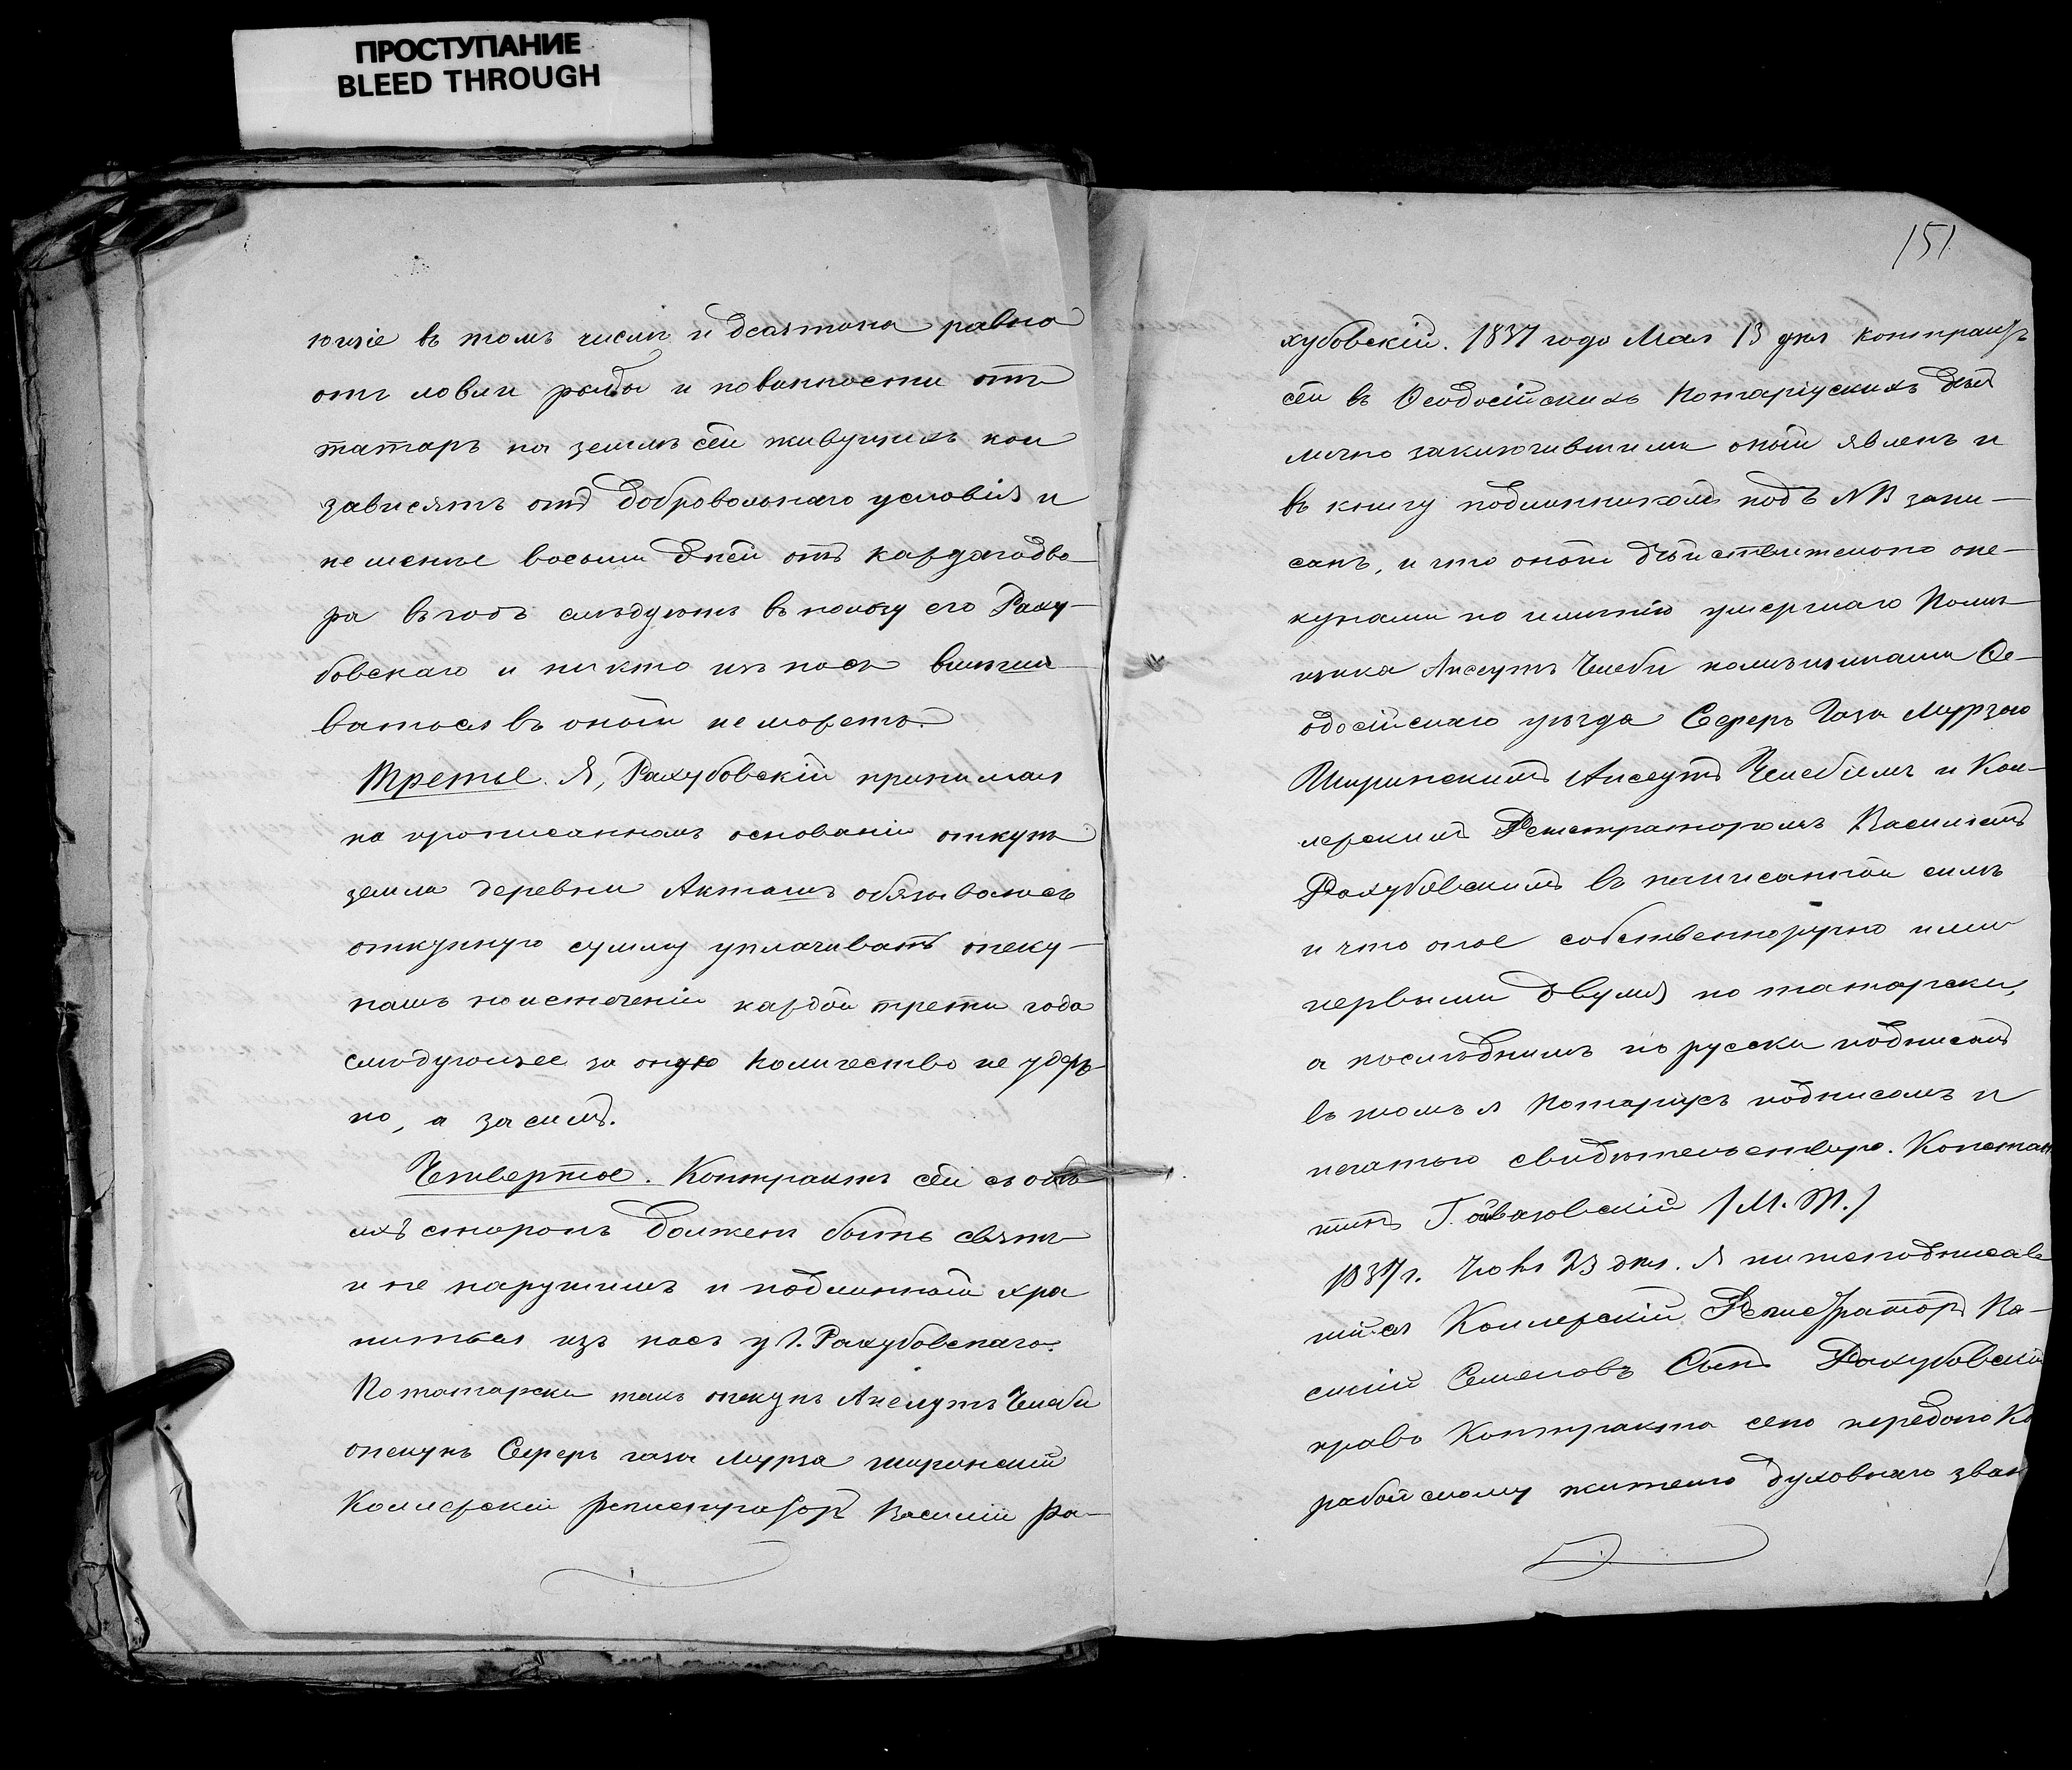 ПРОСТУПАНИЕ
BLEED THROUGH
ющіе въ томъ числѣ и десятина равно
отъ ловли рыбы и повинности отъ
татаръ на землѣ сей живущихъ кои
зависятъ отъ добровольнаго условія и
не менѣе восьми дней отъ каждаго дво-
ра въ годъ слѣдуютъ въ пользу его Раху-
бовскаго и никто изъ насъ вмѣши-
ваться въ оной не можетъ.
Третье. Я, Рахубовскій принимая
на прописанномъ основаніи откупъ
земли деревни Акташъ обязываюсь
откупную сумму уплачивать опеку-
намъ по истеченіи каждой трети года
слѣдующее за оную количество не удерж-
но, а за симъ.
Четвертое. Контрактъ сей съ обѣ-
ихъ сторонъ долженъ быть святъ
и не нарушимъ и подлинный хра
ниться изъ насъ у Г. Рахубовскаго.
По татарски такъ опекунъ Аксеутъ Челеби
опекунъ Сеферъ газы Мурза ширинскій
Коллежскій регистраторъ Василій Ра-
151
хубовскій. 1837 года Мая 13 дня контрактъ
сей въ Ѳеодосійскихъ Нотаріускихъ дѣл
лично заключившими оный явленъ и
въ книгу подлинникомъ подъ № 13 запи-
санъ, и что оный дѣйствительно опе-
кунами по имѣнію умершаго Помѣ-
щика Аксеутъ Челеби помѣщиками Ѳе-
одосійскаго уѣзда Сеферъ Газы Мурзою
Ширинскимъ Аксеутъ Челебіемъ и Кол-
лежскимъ Регистраторомъ Василіемъ
Рахубовскимъ въ написанной силѣ
и что оное собственноручно ими
первыми двумя по татарски,
а послѣднимъ по русски подписанъ
въ томъ я Нотаріусъ подписомъ и
печатью свидѣтельствую. Констан
тинъ Гайвазовскій /М. П./
1837 г. Іюня 23 дня. Я нижеподписав
шійся Коллежскій Регистраторъ Ва-
силій Семеновъ Сынъ Рахубовскій
право Контракта сего передаю Ка
рабайскому жителю духовнаго зван